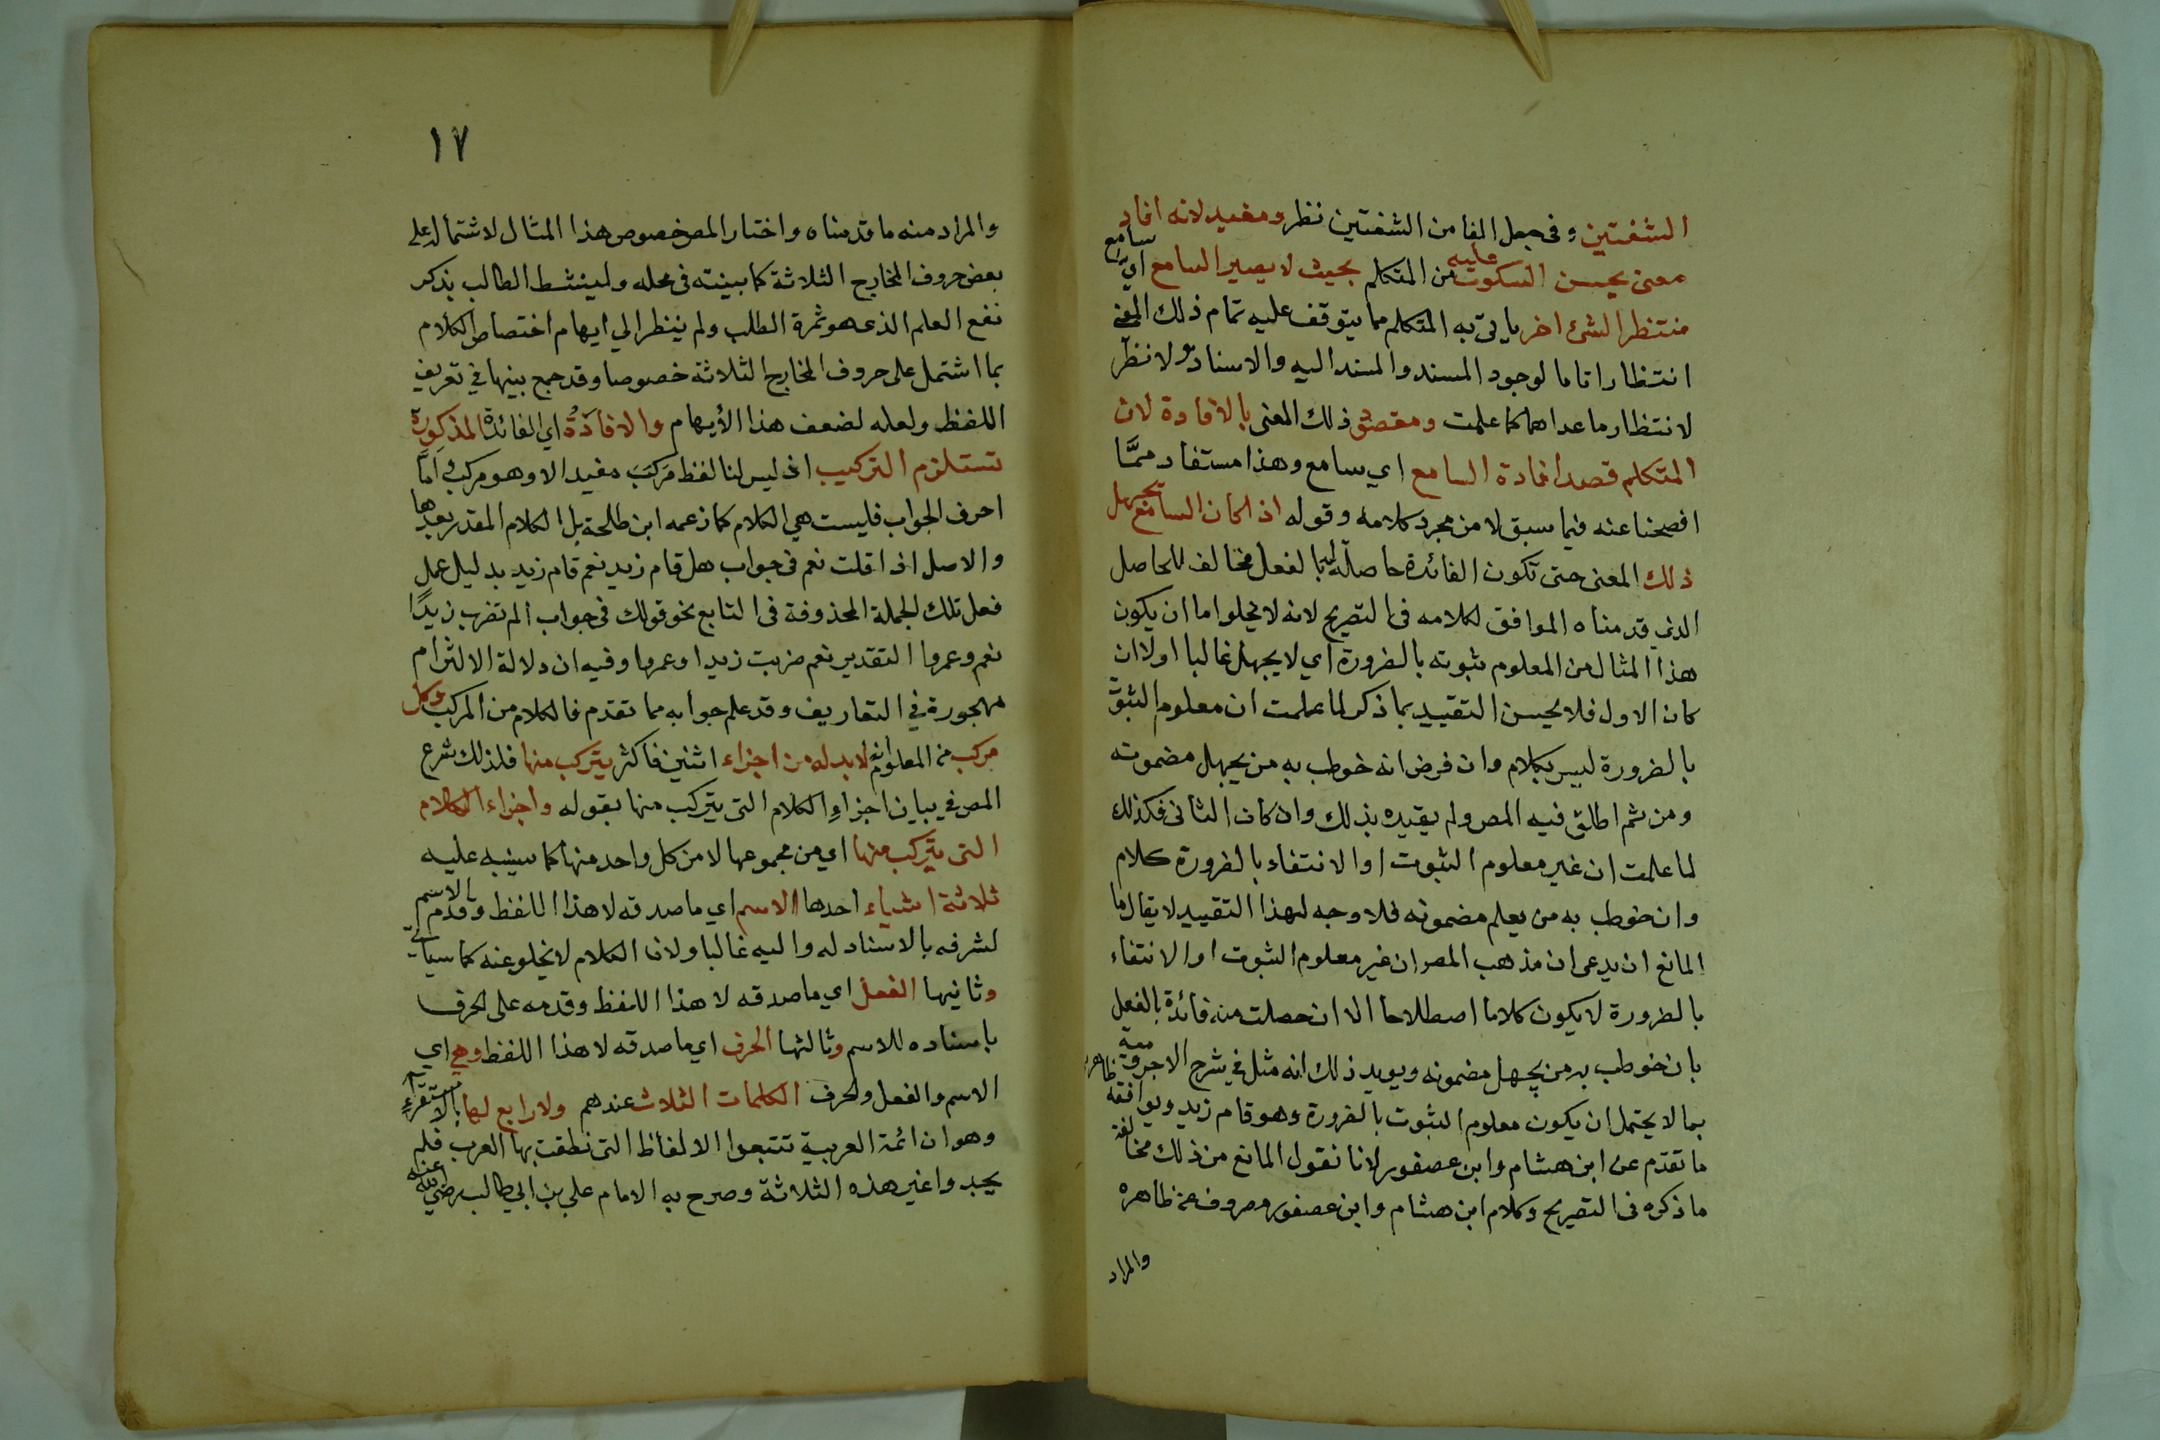 الشفتين وفي جعل الفا من الشفتين نظر ومفيد لانه افاد
معنى يحسن السكوت عليه من المتكلم بحيث لا يصير السامع اي سامع
منتظرا لشئ اخر ياتي به المتكلم مما يتوقف عليه تمام ذلك المعنى
انتظارا تاما لوجود المسند والمسند اليه والاسناد ولا نظر
لانتظار ما عداهما كما علمت ومقصود ذلك المعنى بالافادة لان
المتكلم قصد افادة السامع اي سامع وهذا مستفاد ممَّا
افصحنا عنه فيما سبق لا من مجرد كلامه وقوله اذا كان السامع يجهل
ذلك المعنى حتى تكون الفائدة حاصلة بالفعل مخالف للحاصل
الذي قدمناه الموافق لكلامه في التصريح لانه لا يخلوا اما ان يكون
هذا المثال من المعلوم ثبوته بالضرورة اي لا يجهل غالبا اولا ان
كان الاول فلا يحسن التقييد بما ذكر لما علمت ان معلوم الثبوت
بالضرورة ليس بكلام وان فرض انه خوطب به من يجهل مضمونه
ومن ثم اطلق فيه المص ولم يقيده بذلك وان كان الثاني فكذلك
لما علمت ان غير معلوم الثبوت او الانتفاء بالضرورة كلام
وان خوطب به من يعلم مضمونه فلا وجه لهذا التقييد لا يقال ما
المانع ان يدعى ان مذهب المص ان غير معلوم الثبوت او الانتفاء
بالضرورة لا يكون كلاما اصطلاحا الا ان حصلت منه فائدة بالفعل
بان خوطب به من يجهل مضمونه ويويد ذلك انه مثل في شرح الاجرومية ظاهرا
بما لا يحتمل ان يكون معلوم الثبوت بالضرورة وهو قام زيد ويوافقه
ما تقدم عن ابن هشام وابن عصفور لانا نقول المانع من ذلك مخالفة
ما ذكره في التصريح وكلام ابن هشام وابن عصفور مصروف عن ظاهره
والمراد
١٧
والمراد منه ما قدمناه واختار المص خصوص هذا المثال لاشتماله على
بعض حروف المخارج الثلاثة كما بينته في محله ولينشط الطالب بذكر
نفع العلم الذي هو ثمرة الطلب ولم ينظر الي ايهام اختصاص الكلام
بما اشتمل على حروف المخارج الثلاثة خصوصا وقد جمع بينها في تعريف
اللفظ ولعله لضعف هذا الأيهام والافادَةُ اي الفائدة المذكورة
تستلزم التركيب اذ ليس لنا لفظ مركب مفيد الا وهو مركب وامَّا
احرف الجواب فليست هي الكلام كما زعمه ابن طلحة بل الكلام المقدر بعدها
والاصل اذا قلت نعم في جواب هل قام زيد نعم قام زيد بدليل عمل
فعل تلك الجملة المحذوفة في التابع نحو قولك في جواب الم تضرب زيدًا
نعم وعمروا التقدير نعم ضربت زيدا وعمروا وفيه ان دلالة الالتزام
مهجورة في التعاريف وقد علم جوابه مما تقدم فالكلام من المركب وكل
مركب من المعلوم انه لا بد له من اجزاء اثنين فاكثر يتركب منها فلذلك شرع
المص في بيان اجزاءِ الكلام التي يتركب منها بقوله واجزاء الكلام
التي يتركب منها اي من مجموعها لا من كل واحد منها كما سينبه عليه
ثلاثة اشياء احدها الاسم اي ما صدقه لا هذا اللفظ وقدم الاسم
لشرفه بالاسناد له واليه غالبا ولان الكلام لا يخلو عنه كما سياتي
وثانيها الفعل اي ما صدقه لا هذا اللفظ وقدمه على الحرف
باسناده للاسم وثالثها الحرف اي ما صدقه لا هذا اللفظ وهي اي
الاسم والفعل والحرف الكلمات الثلاث عندهم ولا رابع لها بالاستقراءِ
وهو ان ائمة العربية تتبعوا الالفاظ التي نطقت بها العرب فلم
يجدوا غير هذه الثلاثة وصرح به الامام علي بن ابي طالب رضي الله عنه